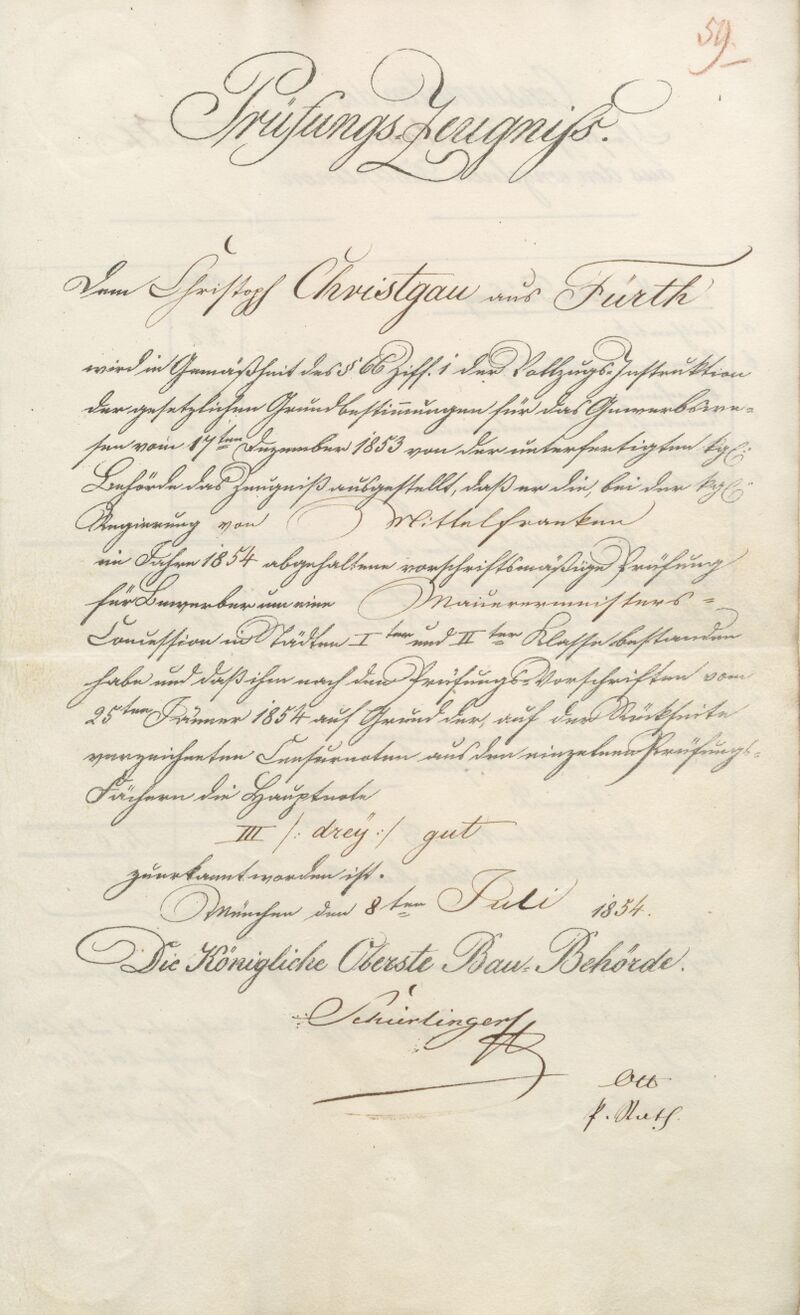 59.
Prüfungs-Zeugniß.
Dem Christoph Christgau aus Fürth
wird in Gemäßheit des § 66 Ziff. 1 der Vollzugs-Instruktion
der gesetzlichen Grundbestimmungen für das Gewerbswe-
sen vom 17ten Dezember 1853 von der unterfertigten kgl:
Behörde das Zeugniß ausgestellt, daß er die, bei der kgl:
Regierung von Mittelfranken
im Jahre 1854 abgehaltene vorschriftsmäßige Prüfung
für Bewerber um eine Mauerermeisters-
Concession in Städten Iter und IIter Klasse bestanden
habe und daß ihm nach den Prüfungs-Vorschriften vom
25ten Jänner 1854 auf Grund der, auf der Rückseite
verzeichneten Censurnoten aus den einzelnen Prüfungs-
Fächern die Hauptnote
III /: dreÿ :/ gut
zuerkannt worden ist.
München den 8ten Juli 1854.
Die Königliche Oberste Bau-Behörde.
Schierlinger
Ott